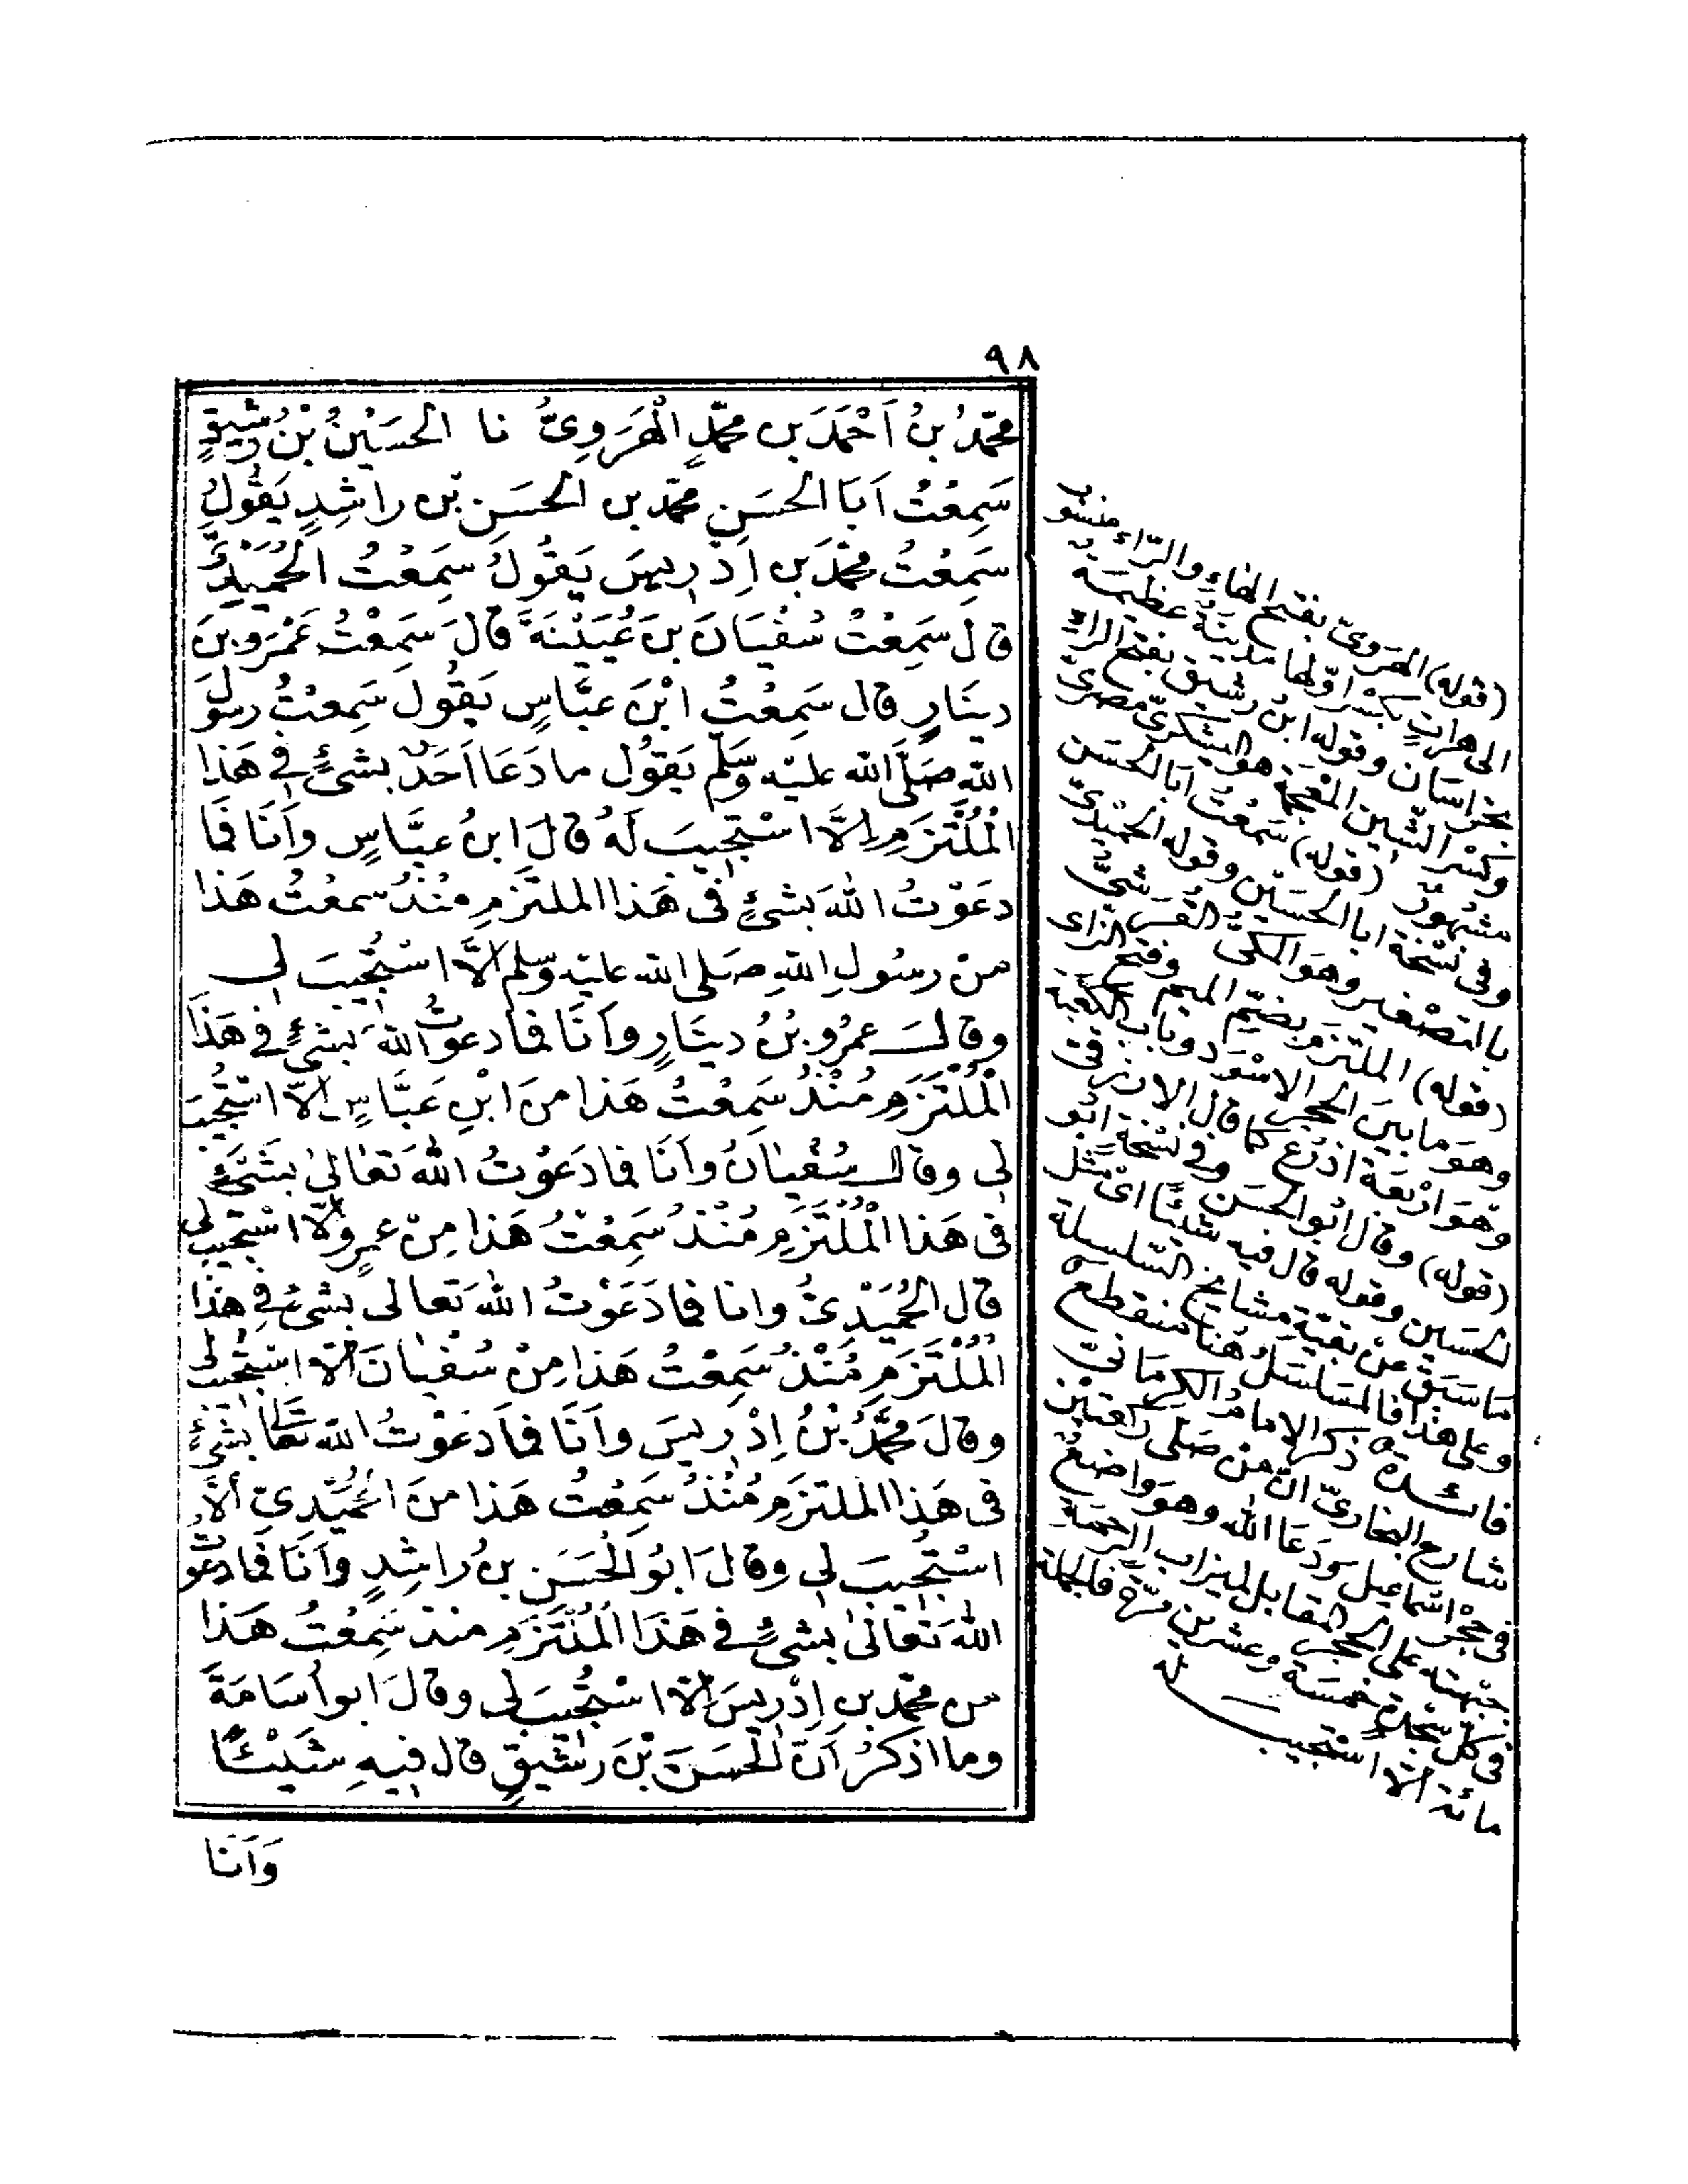 ٩٨
محمّدُ بنُ اَحْمَدَ بن محمّدٍ الْهَرَوِىُّ نا الحسَيْنُ بْنُ رَشِيقٍ
سَمِعْتُ اَبَا الحسَنِ محمّد بن الحسَنِ بْن راشِدٍ يَقُولُ
سَمِعْتُ محمّدَ بن اِدْرِيسَ يَقُولُ سَمِعْتُ الحُمَيْدِىَّ
قال سَمِعْتُ سُفْيَانَ بنَ عُيَيْنَةَ قالَ سَمِعْتُ عَمْرَو بنَ
دينَارٍ قال سَمِعْتُ ابْنَ عبَّاسٍ يَقُولُ سَمِعْتُ رسولَ
الله صَلَّى الله عليْه وَسَلّم يَقُول ما دَعَا اَحَدٌ بشئٍ فى هَذا
الْمُلْتَزَمِ اِلَّا اسْتُجِيبَ لَهُ قالَ ابنُ عبَّاسٍ وأَنَا فَمَا
دعَوْتُ اللهَ بشئٍ فى هَذا الملتَزَمِ مُنْذُ سمعْتُ هَذا
منْ رسُولِ اللهِ صَلى الله عليه وسلم الَّا اسْتُجِيبَ لى
وقالـــَ عمرُو بنُ دينَارٍ وأنَا فما دعوتُ اللهَ بَشئٍ فى هَذَا
الْمُلْتَزَمِ مُنْذُ سَمِعْتُ هَذا منَ ابْنِ عَبَّاسٍ الّا اسْتُجِيبَ
لى وقالـــ سُفْيانُ وأنَا فما دَعَوْتُ اللهَ تَعَالىٰ بشَئٍ
فى هَذا الْمُلْتَزَمِ مُنْذُ سَمِعْتُ هَذا مِنْ عمرٍو الّا اسْتُجِيبَ لى
قال الحُمَيْدِىُّ وانا فما دَعَوْتُ اللهَ تعَالى بشئٍ فى هذا
الْمُلْتَزَمِ مُنْذُ سَمِعْتُ هَذا مِنْ سُفْيانَ الّا اسْتُجيبَ لى
وقالَ محمَّدُ بْنُ إِدْرِيسَ وأَنَا فَمَا دَعَوْتُ الله تعَالىٰ بشئٍ
فى هَذا الملتزَمِ مُنْذُ سَمِعْتُ هَذا منَ الحُمَيْدِىِّ اَلّا
اسْتُجِيبَ لى وقالَ ابُو الْحُسَن بنُ راشِدٍ وأَنَا فَما دعَوْتُ
اللهَ تعَالىٰ بشئٍ فى هَذَا الْمُلْتَزَمِ منذ سَمِعْتُ هَذا
من محمّد بن إِدْرِيسَ الّا اسْتُجِيبَ لى وقالَ ابو أُسَامَةَ
وما اذكُرُ اَنّ الحسَنَ بْنَ رَشيقٍ قال فيهِ شَيْئًا
وَأَنَا
(قوله) الهَرَوىّ بفتح الهاء والرّاء منسُوب
الى هراتٍ بكسْر اوّلها مَدِينَةٌ عظيمَة
بخراسَان وقوله ابنُ رشيق بفتح الراء
وكسْر الشين المعْجَمَة هو العسْكرىّ مصرىّ
مشهورٌ (قوله) سَمعْتُ ابَا الحسَن
وفى نسْخَة ابا الحسَيْن وقوله الحمَيْدىّ
بالتصْغير وهوَ المكىُّ القرَشىُّ
(قوله) الملتزَم بضمّ الميم وفتح الزاى
وهوَ ما بينَ الحجر الاسْوَد وبَاب الكَعْبَة
وهوَ ارْبَعَة اذرُع كما قال الازرقى
(قوله) وقال ابُو الحسَن وفى نسْخَةٍ ابُو
الحسَين وقوله قال فيه شيْئًا اىْ مثل
ما سَبَقَ عنْ بَقيّة مشايخ السّلسلة
وعلى هذا فالمسَلسَلُ هُنا منقَطع
فائدة ذكرَ الامامُ الكرمَانىّ
شارح البخارىّ انّ من صَلى ركعتَيْن
فى حجْر اسْمَاعيل ودَعَا الله وهوَ واضعٌ
جبْهته على الحجر المقابل لميزاب الرحمَة
فى كلّ سَجْدة خمسَة وعشرين مرّة فالجملة
مائة الّا اسْتجيبَ له